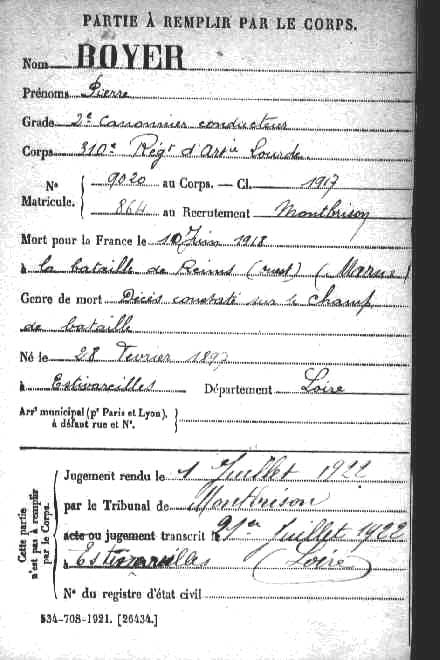 PARTIE À REMPLIR PAR LE CORPS.
Nom BOYER
Prénoms Pierre
Grade 2e canonnier conducteur
Corps 310e Régt d'Artie Lourde
Nº Matricule. { 9020 au Corps. — Cl. 1917
864 au Recrutement Montbrison
Mort pour la France le 10 Juin 1918
à la bataille de Reims (ouest) (Marne)
Genre de mort Décès constaté sur le champ
de bataille
Né le 28 Février 1897
à Estivareilles Département Loire
Arrt municipal (pr Paris et Lyon), à défaut rue et Nº. }
Cette partie n'est pas à remplir par le Corps. {
Jugement rendu le 1 Juillet 1922
par le Tribunal de Montbrison
acte ou jugement transcrit le 21 Juillet 1922
à Estivareilles (Loire)
Nº du registre d'état civil
534-708-1921. [26434.]